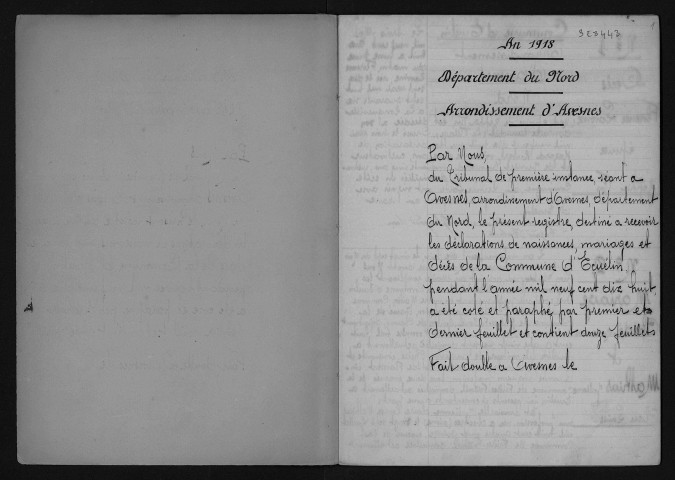 323443
An 1918
Département du Nord
Arrondissement d'Avesnes
Par Nous,
du Tribunal de première instance, séant a
Avesnes, arrondissement d'Avesnes, département
du Nord, le présent registre, destiné a recevoir
les déclarations de naissances, mariages et
décès de la Commune d'Ecuélin
pendant l'année mil neuf cent dix huit
a été coté et paraphé par premier et
dernier feuillet et contient douze feuillets
Fait double a Avesnes le